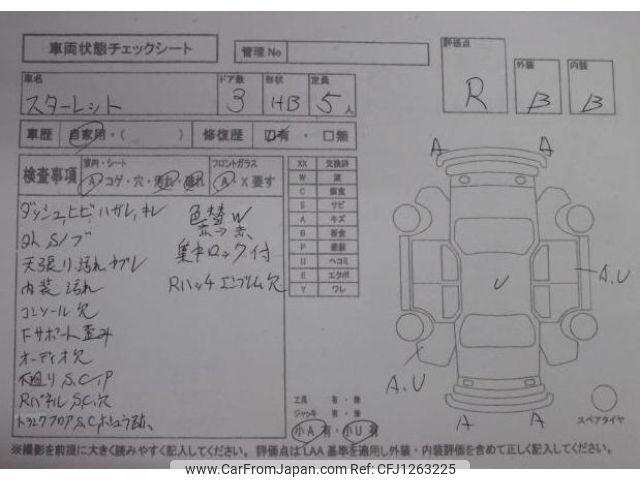 車両状態チェックシート
管理No
評価点
R
外装
B
内装
B
車名
スターレット
ドア数
3
形状
HB
定員
5人
車歴 自家用・( ) 修復歴 □有・□無
検査事項
室内・シート
A コゲ・穴・汚れ・破れ
フロントガラス
A・X要す
ダッシュヒビ、ハガレ、キレ
天張り汚れ
内装汚れ
コンソール欠
Fサポート歪み
オーディオ欠
下廻りS,C,P
RパネルS,C,欠
色替W
集中ロック付
Rハッチエンブレム欠
XX 交換済
W 波
C 腐食
S サビ
A キズ
B 板金
P 塗装
U ヘコミ
E エクボ
Y ワレ
A
A
U
A.U
A.U
A
A
工具 有・無
ジャッキ 有・無
小A有・小U有
スペアタイヤ
※撮影を前提に大きく読みやすく記入してください。評価点はLAA基準を適用し外装・内装評価を含めて正しく記入してください。
www.CarFromJapan.com - CFJ1263225